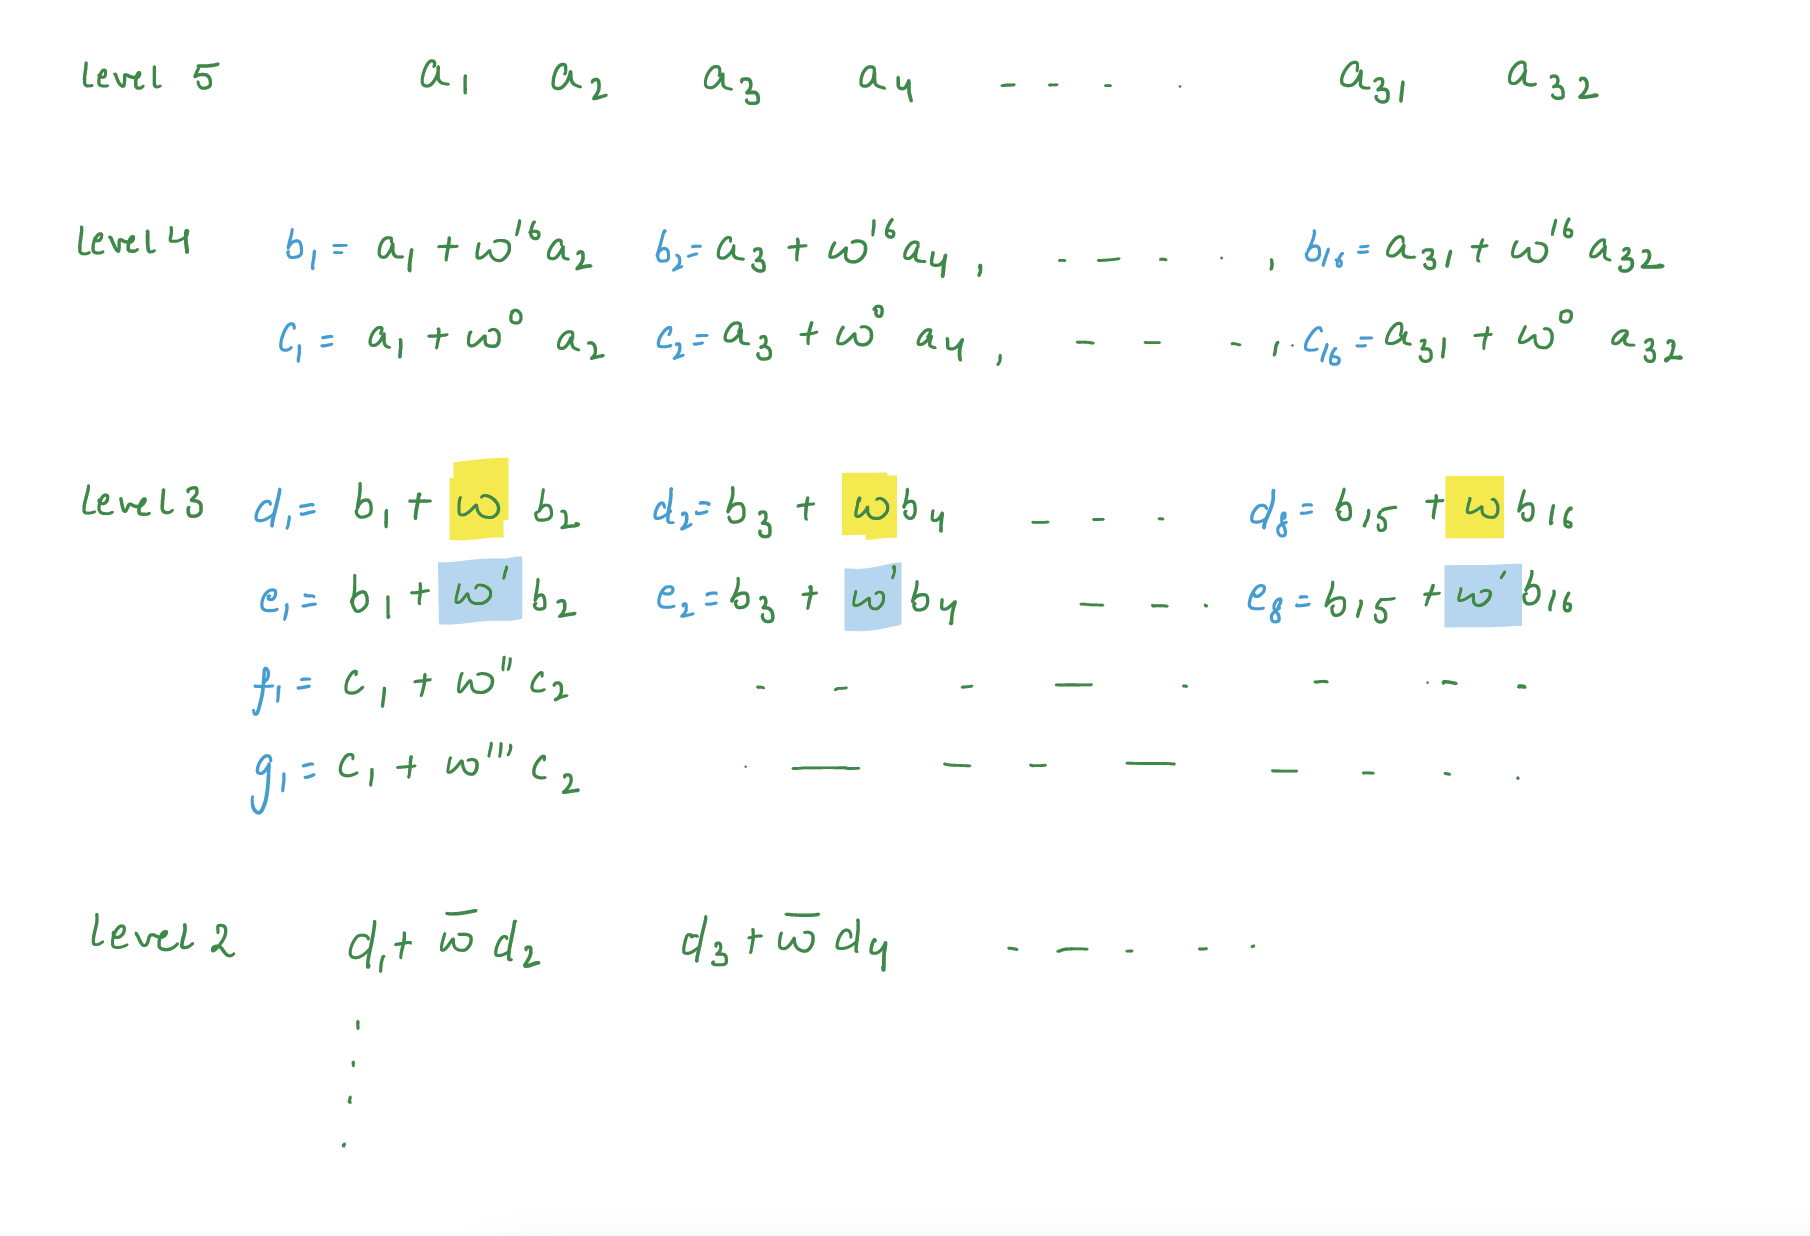 Level 5 a₁ a₂ a₃ a₄ - - - . a₃₁ a₃₂
Level 4 b₁ = a₁ + ω¹⁶ a₂ b₂ = a₃ + ω¹⁶ a₄ , - - - . , b₁₆ = a₃₁ + ω¹⁶ a₃₂
c₁ = a₁ + ω⁰ a₂ c₂ = a₃ + ω⁰ a₄ , - - - , . c₁₆ = a₃₁ + ω⁰ a₃₂
Level 3 d₁ = b₁ + ω b₂ d₂ = b₃ + ω b₄ - - - d₈ = b₁₅ + ω b₁₆
e₁ = b₁ + ω' b₂ e₂ = b₃ + ω' b₄ - - . e₈ = b₁₅ + ω' b₁₆
f₁ = c₁ + ω'' c₂ - - - - . - . - -
g₁ = c₁ + ω''' c₂ . - - - - - - . .
Level 2 d₁ + ω̅ d₂ d₃ + ω̅ d₄ - - - - .
.
.
.
.